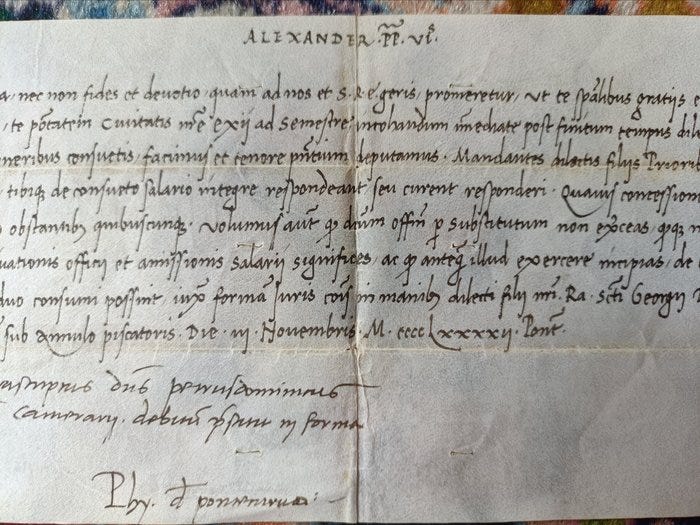 ALEXANDER · PP · VI ·
a, nec non fides et devotio, quam ad nos et S. R. E. geris, promeretur, Ut te spalibus gratijs e
, te ptatem Civitatis nre exij ad Semestre, inchoandum immediate post finitum tempus dile
neribus consuetis, facimus et tenore pntium deputamus. Mandantes dilectis filijs Priorit
, tibiq; de consueto salario integre respondeant seu curent responderi. Quavis concession
obstantib quibuscunq;. Volumus aut q dictum offm p substitutum non exerceas, q;q;
vationis officij et amissionis salarij significes, ac q anteq illud exercere incipias, de
duo consumi possint, iuxta forma iuris cois in manib dilecti filij nri. Ra. Scti Georgij
sub annulo piscatoris. Die. iij. Novembris. M. cccc Lxxxxij. Pont.
dns petrusdominicus
Camerarij. debitu pstitit in forma
Phy. d pontecurvo